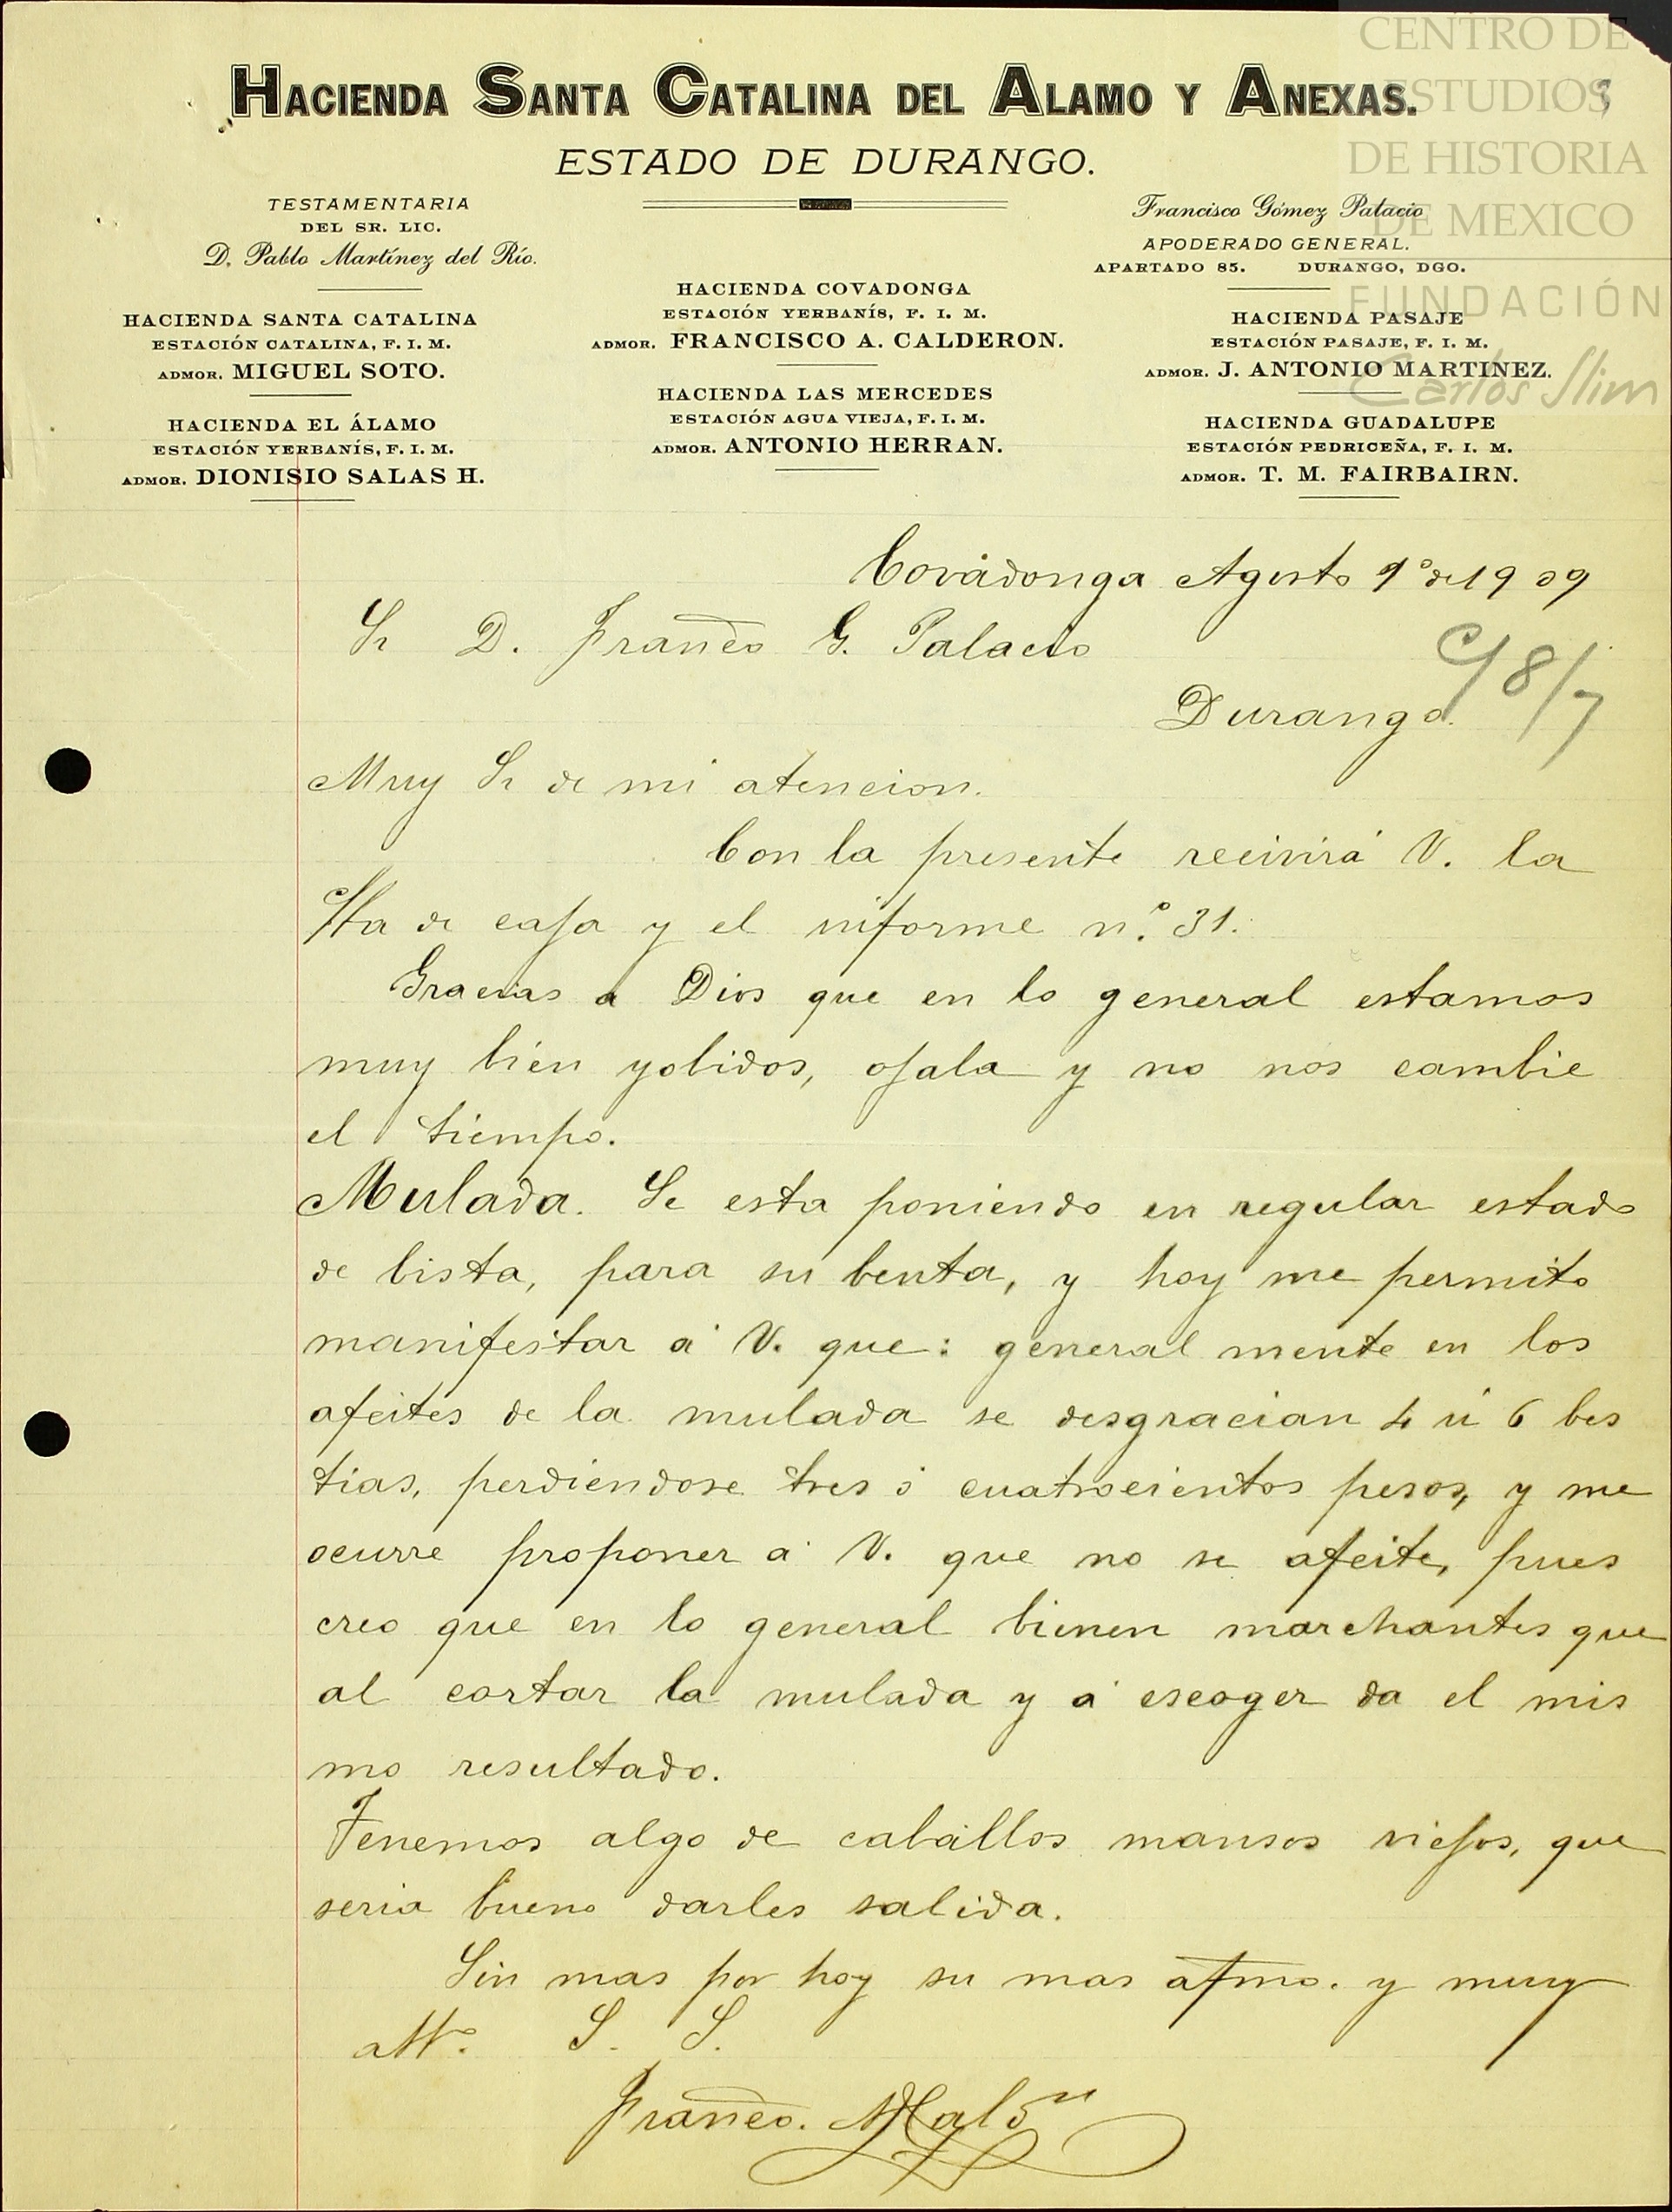 CENTRO DE
ESTUDIOS
DE HISTORIA
DE MEXICO
FUNDACIÓN
Carlos Slim
HACIENDA SANTA CATALINA DEL ALAMO Y ANEXAS.
ESTADO DE DURANGO.
TESTAMENTARIA
DEL SR. LIC.
D. Pablo Martínez del Río.
HACIENDA SANTA CATALINA
ESTACIÓN CATALINA, F. I. M.
ADMOR. MIGUEL SOTO.
HACIENDA EL ÁLAMO
ESTACIÓN YERBANÍS, F. I. M.
ADMOR. DIONISIO SALAS H.
HACIENDA COVADONGA
ESTACIÓN YERBANÍS, F. I. M.
ADMOR. FRANCISCO A. CALDERON.
HACIENDA LAS MERCEDES
ESTACIÓN AGUA VIEJA, F. I. M.
ADMOR. ANTONIO HERRAN.
Francisco Gómez Palacio
APODERADO GENERAL.
APARTADO 85. DURANGO, DGO.
HACIENDA PASAJE
ESTACIÓN PASAJE, F. I. M.
ADMOR. J. ANTONIO MARTINEZ.
HACIENDA GUADALUPE
ESTACIÓN PEDRICEÑA, F. I. M.
ADMOR. T. M. FAIRBAIRN.
Covadonga Agosto 1º de 1909
Sr D. Franco G. Palacio
Durango.
C/8/7
Muy Sr de mi atencion.
Con la presente recivirá V. la
c/ta de caja y el informe n.º 31.
Gracias a Dios que en lo general estamos
muy bien yobidos, ojala y no nos cambie
el tiempo.
Mulada. Se esta poniendo en regular estado
de bista, para su benta, y hoy me permito
manifestar á V. que: general mente en los
afeites de la mulada se desgracian 4 ú 6 bes
tias, perdiendose tres ó cuatrocientos pesos, y me
ocurre proponer á V. que no se afeite, pues
creo que en lo general bienen marchantes que
al cortar la mulada y á escoger da el mis
mo resultado.
Tenemos algo de caballos mansos viejos, que
seria bueno darles salida.
Sin mas por hoy su mas afmo. y muy
atto. S. S.
Franco.